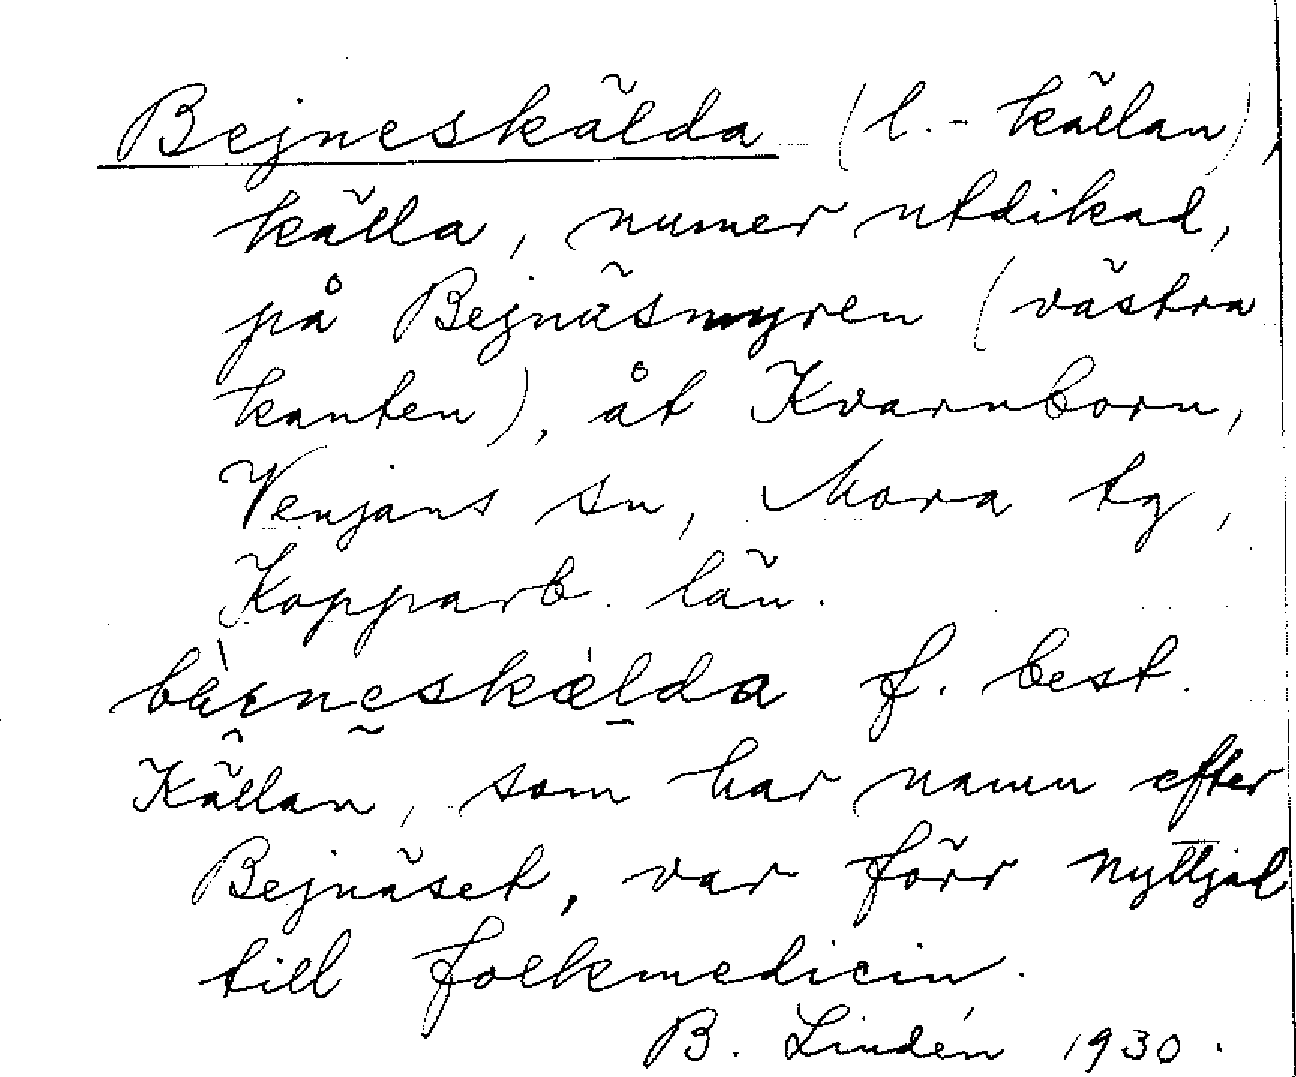 Bejneskälda (l.- källan),
källa, numer utdikad,
på Bejnäsmyren (västra
kanten), åt Kvarnborn,
Venjans sn, Mora tg,
Kopparb. län.
f. best.
Källan, som har namn efter
Bejnäset, var förr nyttjad
till folkmedicin.
B. Lindén 1930.